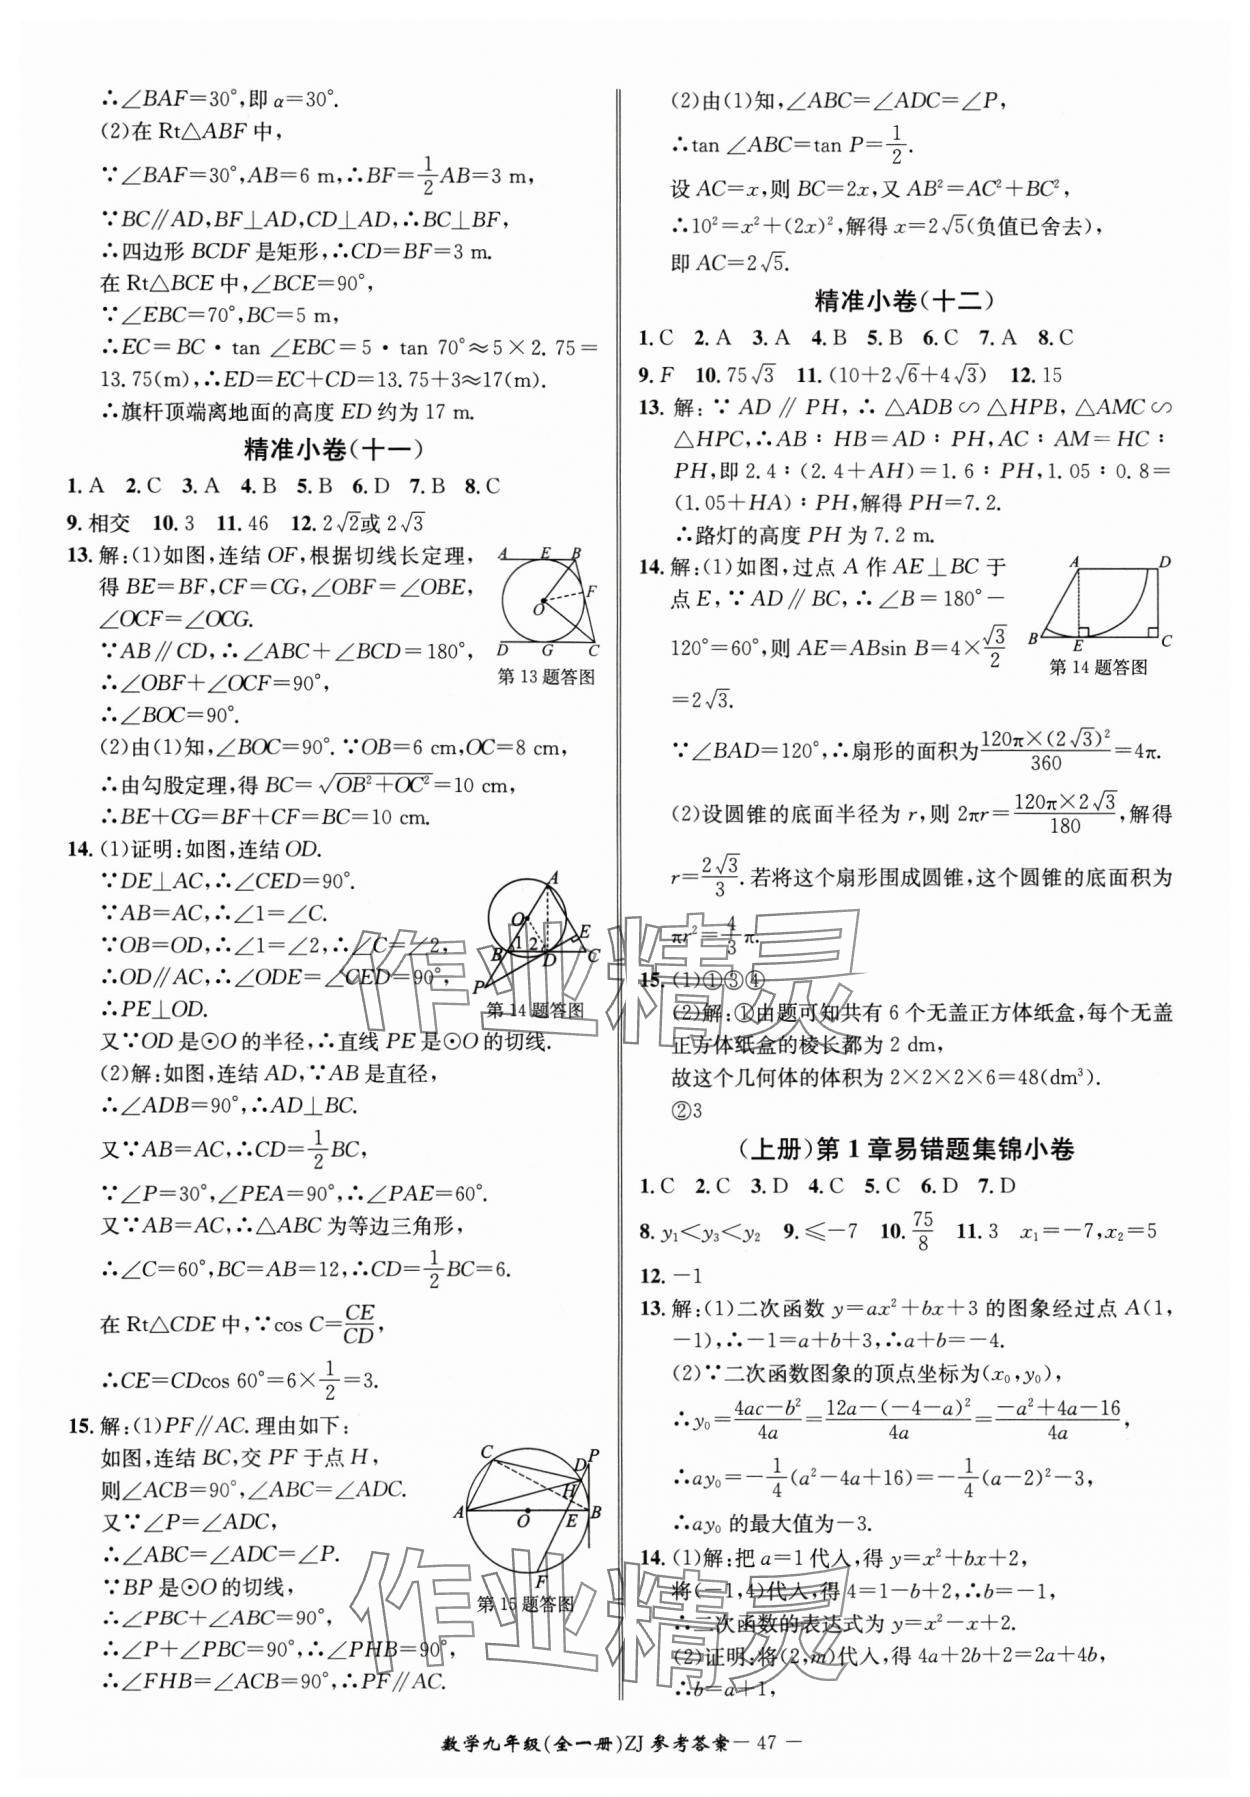 ∴∠BAF=30°,即 α=30°.
(2)在 Rt△ABF 中,
∵∠BAF=30°,AB=6 m,∴BF=1/2AB=3 m,
∵BC∥AD,BF⊥AD,CD⊥AD,∴BC⊥BF,
∴四边形 BCDF 是矩形,∴CD=BF=3 m.
在 Rt△BCE 中,∠BCE=90°,
∵∠EBC=70°,BC=5 m,
∴EC=BC·tan ∠EBC=5·tan 70°≈5×2.75=
13.75(m),∴ED=EC+CD=13.75+3≈17(m).
∴旗杆顶端离地面的高度 ED 约为 17 m.
精准小卷(十一)
1. A 2. C 3. A 4. B 5. B 6. D 7. B 8. C
9. 相交 10. 3 11. 46 12. 2√2或 2√3
13. 解:(1)如图,连结 OF,根据切线长定理,
得 BE=BF,CF=CG,∠OBF=∠OBE,
∠OCF=∠OCG.
∵AB∥CD,∴∠ABC+∠BCD=180°,
∴∠OBF+∠OCF=90°,
∴∠BOC=90°.
A E B F O D G C
第 13 题答图
(2)由(1)知,∠BOC=90°.∵OB=6 cm,OC=8 cm,
∴由勾股定理,得 BC=√(OB²+OC²)=10 cm,
∴BE+CG=BF+CF=BC=10 cm.
14. (1)证明:如图,连结 OD.
∵DE⊥AC,∴∠CED=90°.
∵AB=AC,∴∠1=∠C.
∵OB=OD,∴∠1=∠2,∴∠C=∠2,
∴OD∥AC,∴∠ODE=∠CED=90°,
∴PE⊥OD.
A O E B 1 2 D C P
第 14 题答图
又∵OD 是⊙O 的半径,∴直线 PE 是⊙O 的切线.
(2)解:如图,连结 AD,∵AB 是直径,
∴∠ADB=90°,∴AD⊥BC.
又∵AB=AC,∴CD=1/2BC,
∵∠P=30°,∠PEA=90°,∴∠PAE=60°.
又∵AB=AC,∴△ABC 为等边三角形,
∴∠C=60°,BC=AB=12,∴CD=1/2BC=6.
在 Rt△CDE 中,∵cos C=CE/CD,
∴CE=CDcos 60°=6×1/2=3.
15. 解:(1)PF∥AC.理由如下:
如图,连结 BC,交 PF 于点 H,
则∠ACB=90°,∠ABC=∠ADC.
又∵∠P=∠ADC,
∴∠ABC=∠ADC=∠P.
∵BP 是⊙O 的切线,
∴∠PBC+∠ABC=90°,
∴∠P+∠PBC=90°,∴∠PHB=90°,
∴∠FHB=∠ACB=90°,∴PF∥AC.
C D P H A O E B F
第 15 题答图
(2)由(1)知,∠ABC=∠ADC=∠P,
∴tan ∠ABC=tan P=1/2.
设 AC=x,则 BC=2x,又 AB²=AC²+BC²,
∴10²=x²+(2x)²,解得 x=2√5(负值已舍去),
即 AC=2√5.
精准小卷(十二)
1. C 2. A 3. A 4. B 5. B 6. C 7. A 8. C
9. F 10. 75√3 11. (10+2√6+4√3) 12. 15
13. 解:∵AD∥PH,∴△ADB∽△HPB,△AMC∽
△HPC,∴AB∶HB=AD∶PH,AC∶AM=HC∶
PH,即 2.4∶(2.4+AH)=1.6∶PH,1.05∶0.8=
(1.05+HA)∶PH,解得 PH=7.2.
∴路灯的高度 PH 为 7.2 m.
14. 解:(1)如图,过点 A 作 AE⊥BC 于
点 E,∵AD∥BC,∴∠B=180°-
120°=60°,则 AE=ABsin B=4×√3/2
=2√3.
A D B E C
第 14 题答图
∵∠BAD=120°,∴扇形的面积为120π×(2√3)²/360=4π.
(2)设圆锥的底面半径为 r,则 2πr=120π×2√3/180,解得
r=2√3/3.若将这个扇形围成圆锥,这个圆锥的底面积为
πr²=4/3π.
15. (1)①③④
(2)解:①由题可知共有 6 个无盖正方体纸盒,每个无盖
正方体纸盒的棱长都为 2 dm,
故这个几何体的体积为 2×2×2×6=48(dm³).
②3
(上册)第 1 章易错题集锦小卷
1. C 2. C 3. D 4. C 5. C 6. D 7. D
8. y₁<y₃<y₂ 9. ≤-7 10. 75/8 11. 3 x₁=-7,x₂=5
12. -1
13. 解:(1)二次函数 y=ax²+bx+3 的图象经过点 A(1,
-1),∴-1=a+b+3,∴a+b=-4.
(2)∵二次函数图象的顶点坐标为(x₀,y₀),
∴y₀=(4ac-b²)/4a=(12a-(-4-a)²)/4a=(-a²+4a-16)/4a,
∴ay₀=-1/4(a²-4a+16)=-1/4(a-2)²-3,
∴ay₀ 的最大值为-3.
14. (1)解:把 a=1 代入,得 y=x²+bx+2,
将(-1,4)代入,得 4=1-b+2,∴b=-1,
∴二次函数的表达式为 y=x²-x+2.
(2)证明:将(2,m)代入,得 4a+2b+2=2a+4b,
∴b=a+1,
数学九年级(全一册)ZJ 参考答案— 47 —
作业精灵
作业精灵